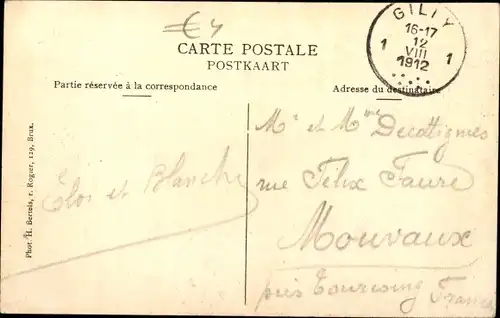 €4
GILLY
16-17
1 12 1
VIII
1912
CARTE POSTALE
POSTKAART
Partie réservée à la correspondance
Adresse du destinataire
Phot. H. Bertels, r. Rogier, 129, Brux.
Elos et Blanche
Mr et Mme Decottignies
rue Félix Faure
Mouvaux
près Tourcoing France